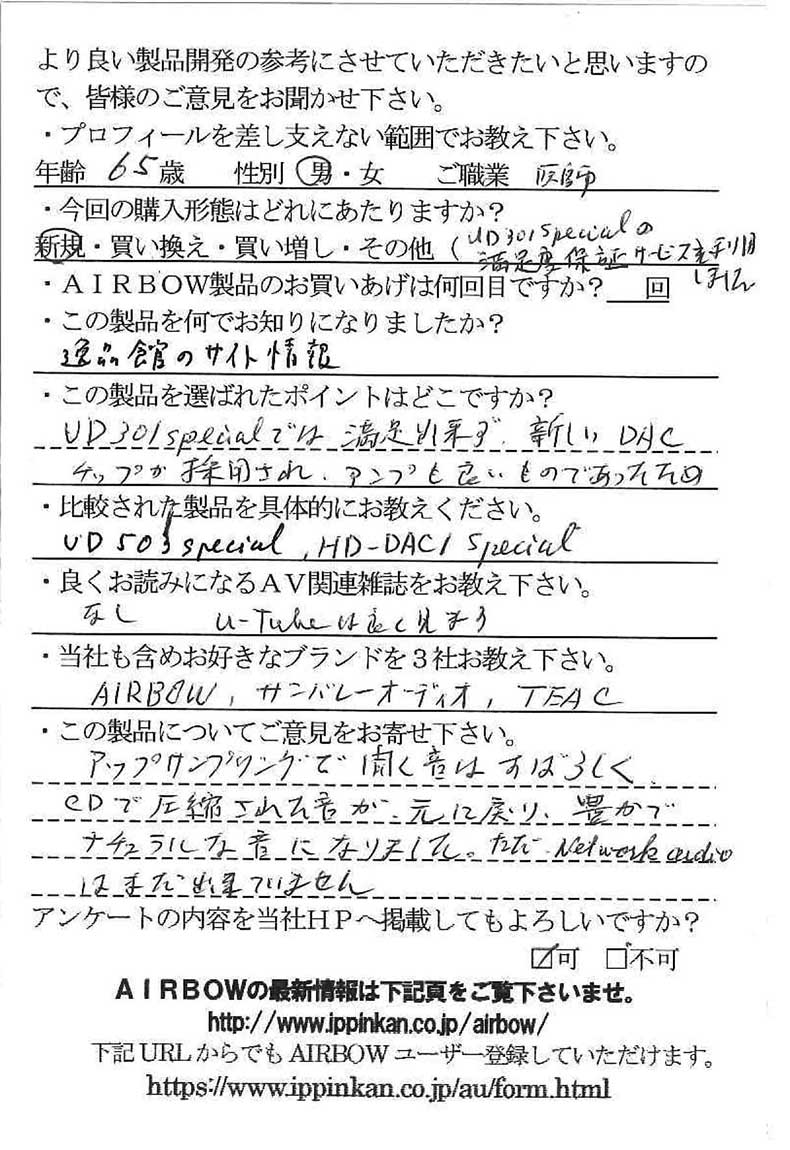 より良い製品開発の参考にさせていただきたいと思いますの
で、皆様のご意見をお聞かせ下さい。
・プロフィールを差し支えない範囲でお教え下さい。
年齢 65歳 性別 男・女 ご職業 医師
・今回の購入形態はどれにあたりますか？
新規・買い換え・買い増し・その他（UD301specialの
満足度保証サービスを利用
しました
・ＡＩＲＢＯＷ製品のお買いあげは何回目ですか？ 回
・この製品を何でお知りになりましたか？
逸品館のサイト情報
・この製品を選ばれたポイントはどこですか？
UD301specialでは満足出来ず、新しいDAC
チップが採用され、アンプも良いものであったため
・比較された製品を具体的にお教えください。
UD503special, HD-DAC1 Special
・良くお読みになるＡＶ関連雑誌をお教え下さい。
なし U-Tubeは良く見ます
・当社も含めお好きなブランドを３社お教え下さい。
AIRBOW, サンバレーオーディオ, TEAC
・この製品についてご意見をお寄せ下さい。
アップサンプリングで聞く音はすばらしく
CDで圧縮された音が、元に戻り、豊かで
ナチュラルな音になりました。ただ、Network audio
はまだ出来ていません
アンケートの内容を当社ＨＰへ掲載してもよろしいですか？
☑可 □不可
ＡＩＲＢＯＷの最新情報は下記頁をご覧下さいませ。
http://www.ippinkan.co.jp/airbow/
下記URLからでもAIRBOWユーザー登録していただけます。
https://www.ippinkan.co.jp/au/form.html